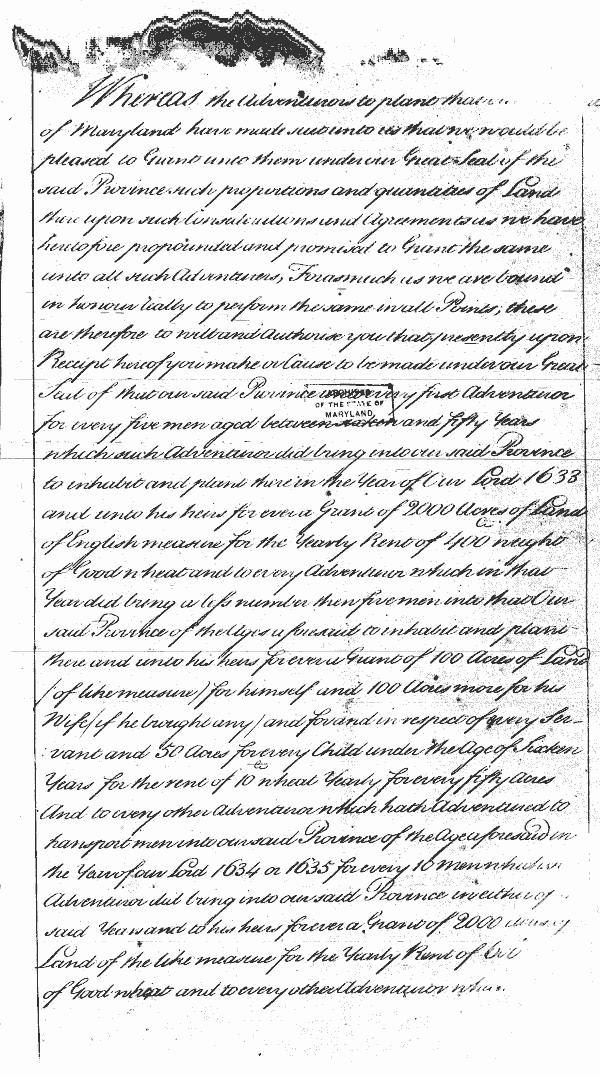 Whereas the Adventurers to plant
of Maryland have made suit unto us that we would be
pleased to Grant unto them under our Great Seal of the
said Province such proportions and quantities of Land
there upon such Considerations and Agreements as we have
heretofore propounded and promised to Grant the same
unto all such Adventurers, Forasmuch as we are bound
in honour really to perform the same in all Points, these
are therefore to will and Authorise you that presently upon
Receipt hereof you make or Cause to be made under our Great
Seal of that our said Province unto every first Adventuror
OF THE STATE OF
MARYLAND.
for every five men aged between sixteen and fifty Years
which such Adventuror did bring into our said Province
to inhabit and plant there in the Year of Our Lord 1633
and unto his heirs for ever a Grant of 2000 Acres of Land
of English measure for the Yearly Rent of 400 weight
of Good wheat and to every Adventuror which in that
Year did bring a less number then five men into that Our
said Province of the Ages aforesaid to inhabit and plant
there and unto his heirs for ever a Grant of 100 Acres of Land
(of like measure) for himself and 100 Acres more for his
Wife (if he brought any) and for and in respect of every Ser-
vant and 50 Acres for every Child under the Age of Sixteen
Years for the rent of 10 wheat Yearly for every fifty acres
And to every other Adventuror which hath Adventured to
transport men into our said Province of the Age aforesaid in
the Year of our Lord 1634 or 1635 for every 10 men which
Adventuror did bring into our said Province in either of
said Years and to his heirs for ever a Grant of 2000 acres of
Land of the like measure for the Yearly Rent of
of Good wheat and to every other Adventuror